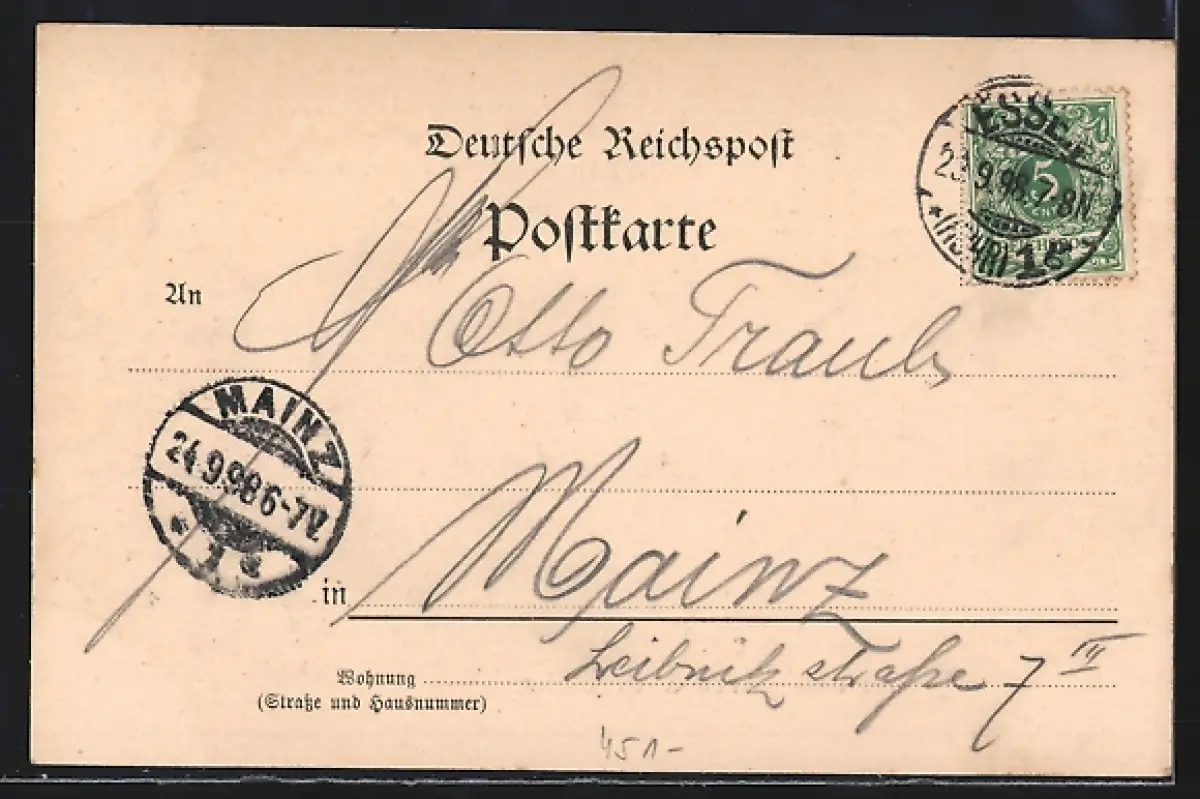 Deutsche Reichspost
Postkarte
ESSEN
23.9.98.7-8N
* (RUHR) 1
5
An
Otto Traub
MAINZ
24.9.98 6-7V.
* 1 *
in Mainz
Wohnung Leibnitzstraße 7 II
(Straße und Hausnummer)